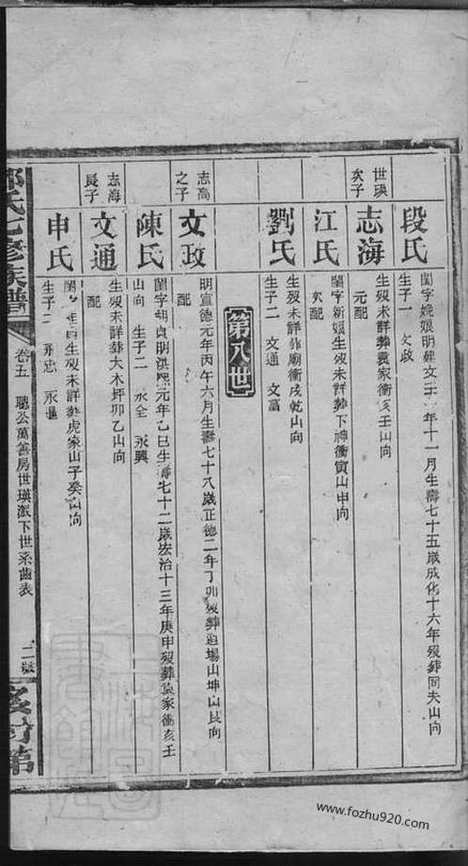 段氏
閨字 娘明建文三 年十一月生壽七十五歲成化十六年歿葬同夫山向
生子一 文政
世瑛次子
志海
生歿未詳葬 家衝亥壬山向
元配
江氏
閨字新娘生歿未詳葬下神衝寅山申向
次配
劉氏
生歿未詳葬 廟衝戌乾山向
生子二 文通 文富
第八世
志高之子
文政
明宣德元年丙午六月生壽七十八歲正德二年丁卯歿葬 場山坤山艮向
配
陳氏
閨字 貞明洪熙元年乙巳生壽七十二歲宏治十三年庚申歿葬 家衝亥壬
山向 生子二 永全 永興
志海長子
文通
生歿未詳葬大木坪卯乙山向
配
申氏
閨 生歿未詳葬虎象山子癸山向
生子二 永忠 永
氏七修族譜
卷五
聰公萬善房世瑛派下世系齒表
二